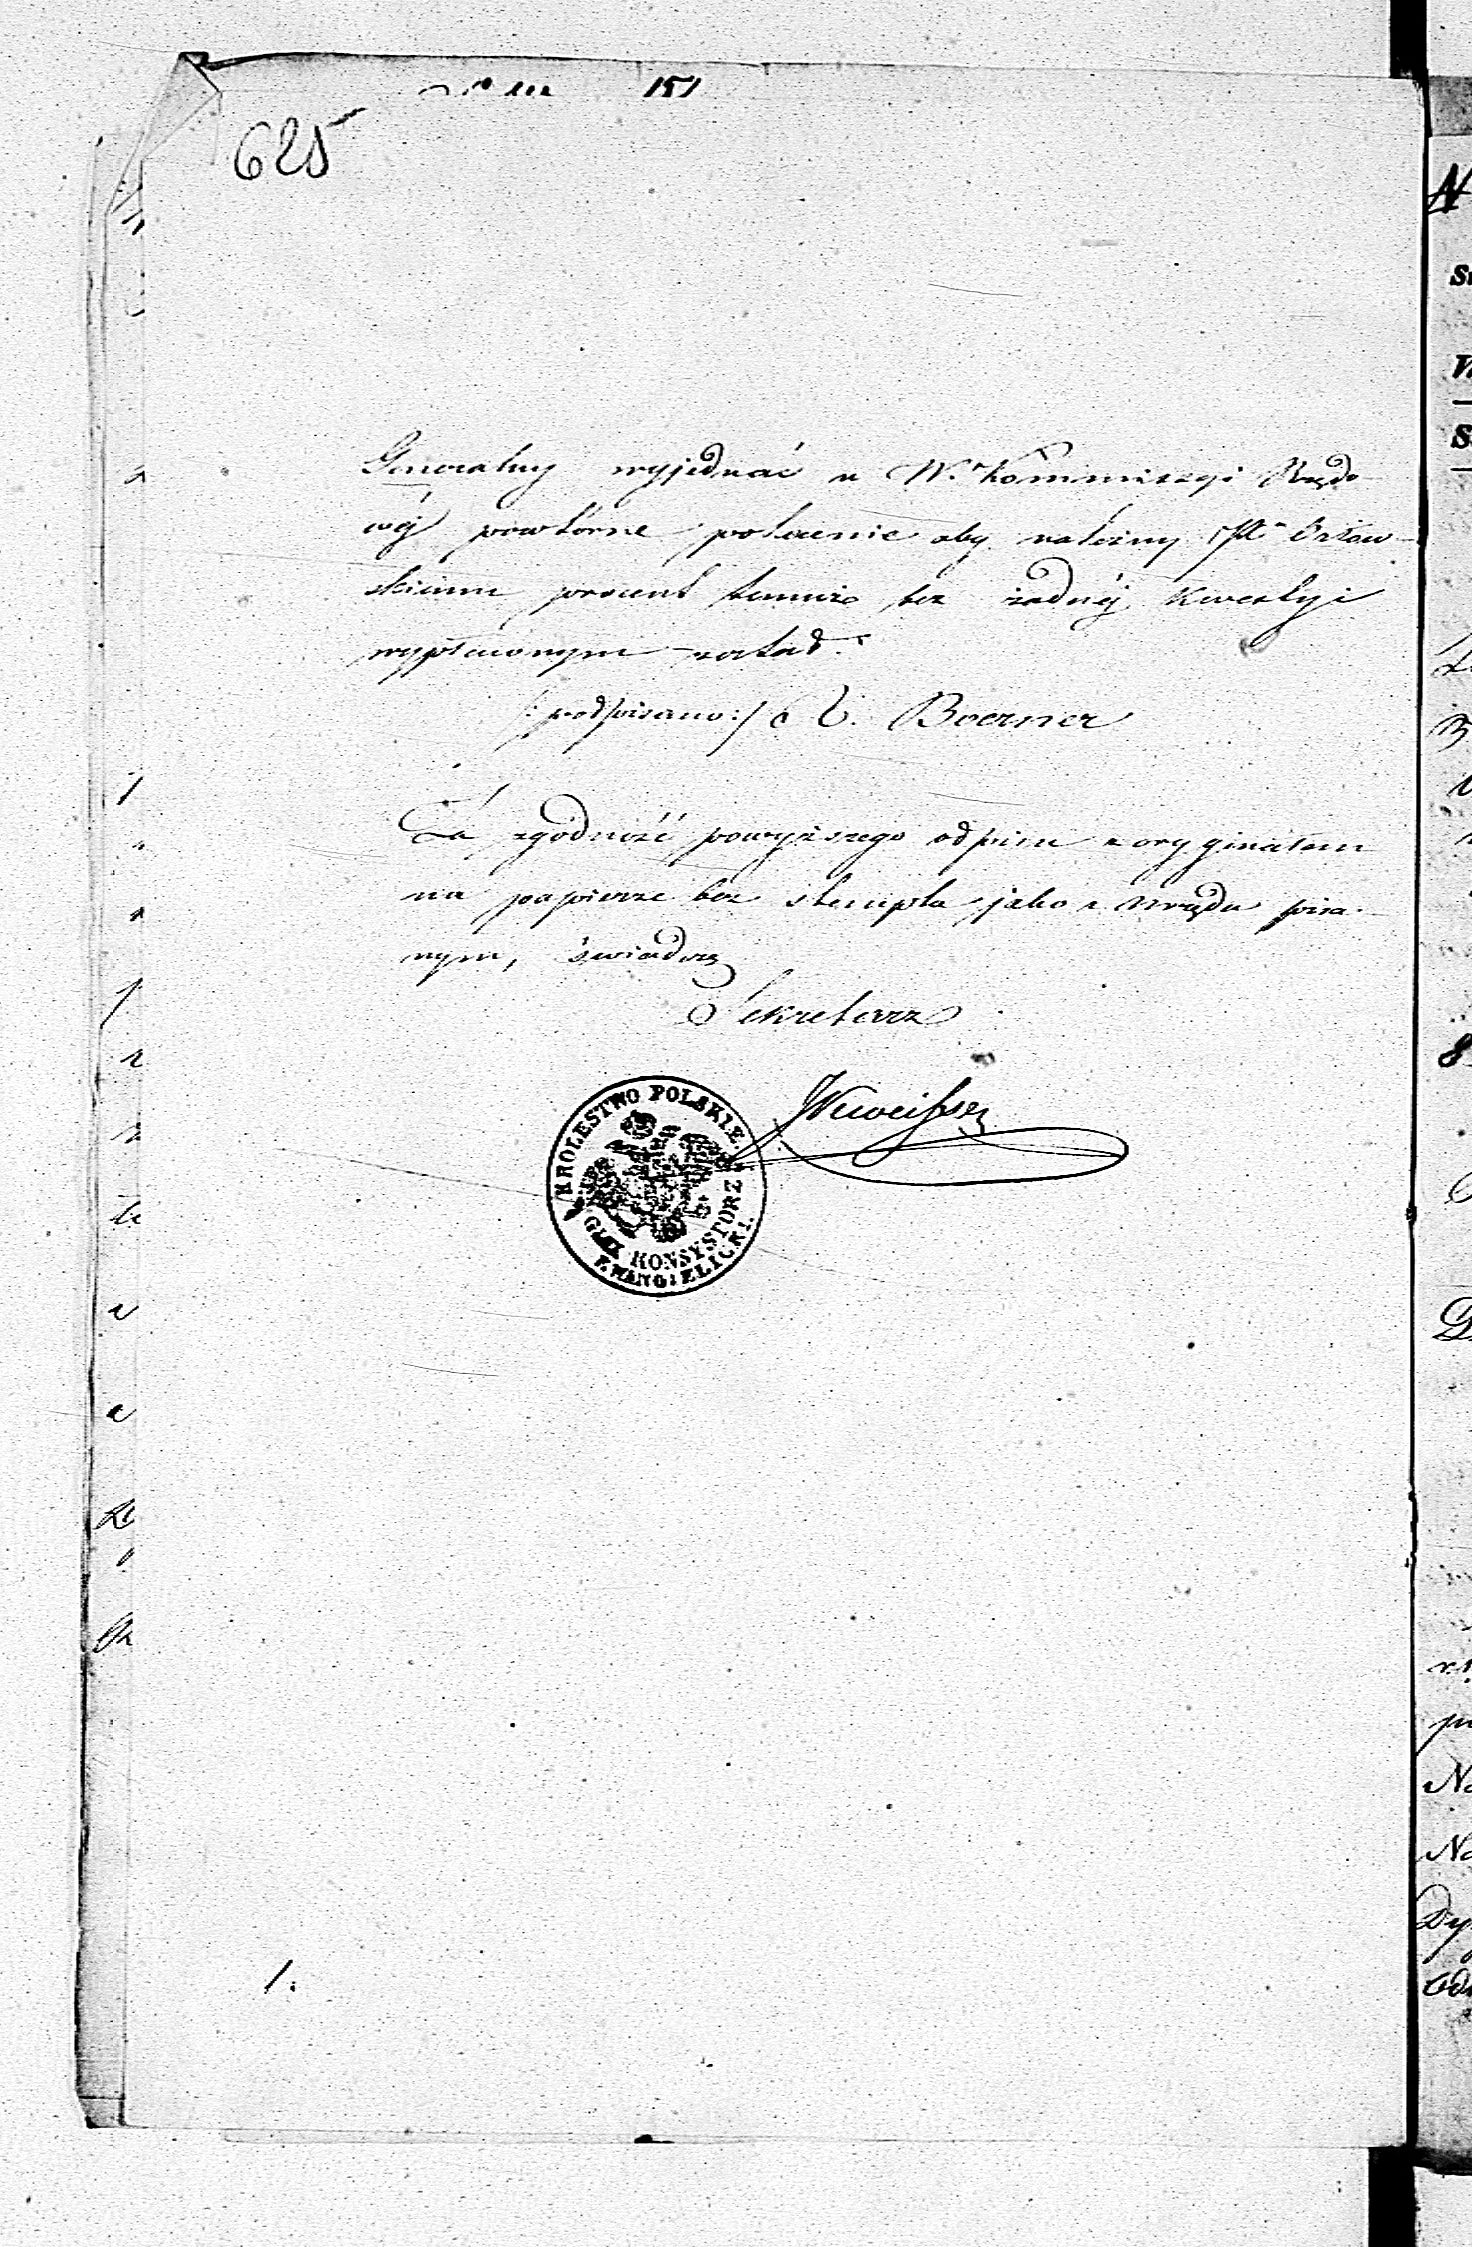 151
625
Generalny wyjednać u W. Kommissyi Rządo-
wéj powtórne polecenie aby należny
skiemu procent temuż bez żadnéj kwestyi
wypłaconym został.
/: podpisano :/ Boerner
Za zgodność powyższego odpisu z oryginałem
na papierze bez stempla jako z Urzędu pisa-
nym, świadczę
Sekretarz
KROLESTWO POLSKIE
KONSYSTORZ
EWANGIELICKI.
1.